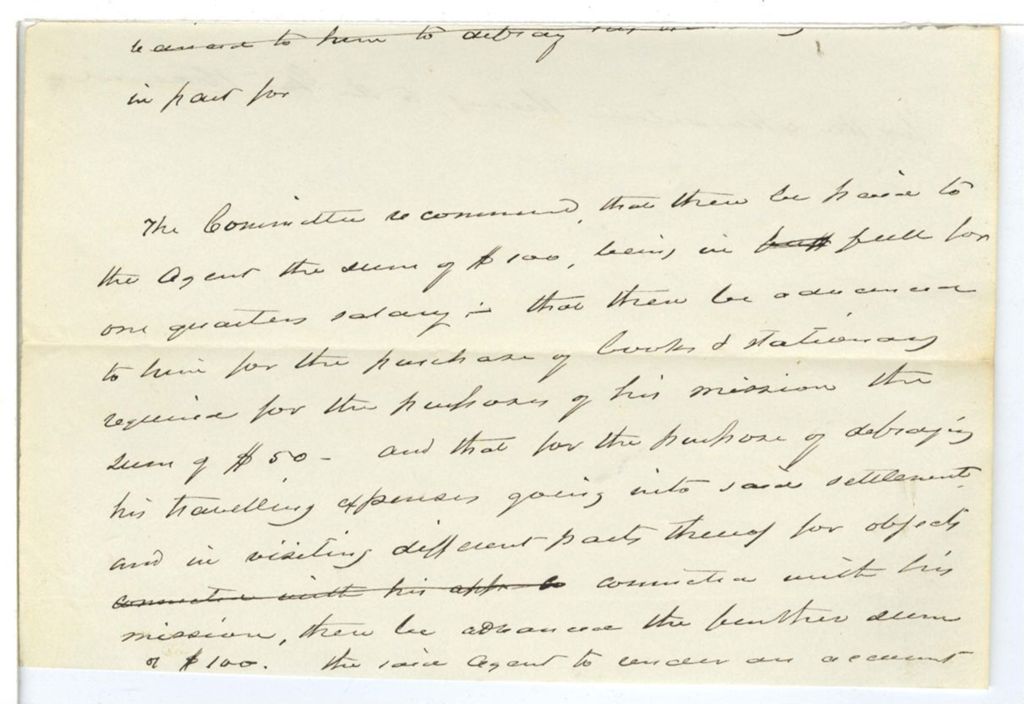 to him to defray his
in part for
The Committee recommend, that there be paid to
the Agent the sum of $100, being in part full for
one quarters salary – that there be advanced
to him for the purchase of books & stationary
required for the purposes of his mission the
sum of $50 – and that for the purpose of defraying
his travelling expenses going into said settlement
and in visiting different parts thereof for objects
connected with his connected with his
mission, there be advanced the further sum
of $100. The said Agent to render an account